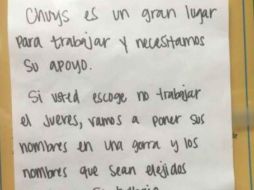 Chuys es un gran lugar
para trabajar y necesitamos
su apoyo.
Si usted escoge no trabajar
el jueves, vamos a poner sus
nombres en una gorra y los
nombres que sean elejidos